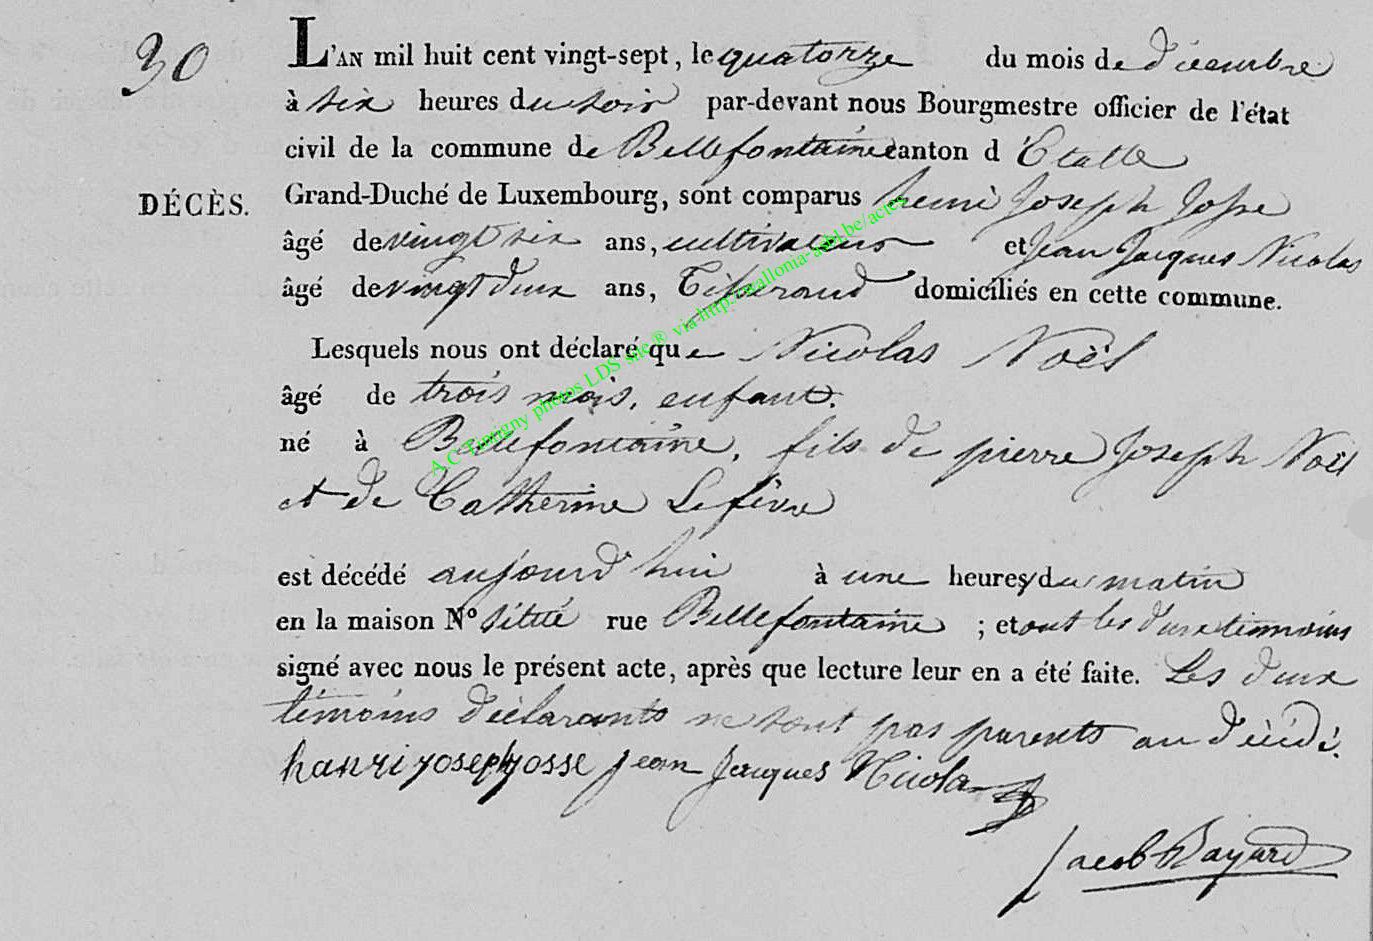 30
L'AN mil huit cent vingt-sept, le quatorze du mois de décembre
à six heures du soir par-devant nous Bourgmestre officier de l'état
civil de la commune de Bellefontaine canton d'Etalle
DÉCÈS.
Grand-Duché de Luxembourg, sont comparus henri Joseph Josse
âgé de vingt six ans, cultivateur et Jean Jacques Nicolas
âgé de vingt deux ans, Tisserand domiciliés en cette commune.
Lesquels nous ont déclaré que Nicolas Noël
âgé de trois mois, enfant.
né à Bellefontaine, fils de pierre Joseph Noël
et de Catherine Lefèvre
est décédé aujourd'hui à une heures du matin
en la maison N° située rue Bellefontaine ; et ont les deux témoins
signé avec nous le présent acte, après que lecture leur en a été faite. Les deux
témoins déclarants ne sont pas parents au décédé.
hanri joseph josse jean jacques Nicolas
Jacob Bayard
A.C. Tintigny photos LDS site ® via http://wallonia-asbl.be/actes